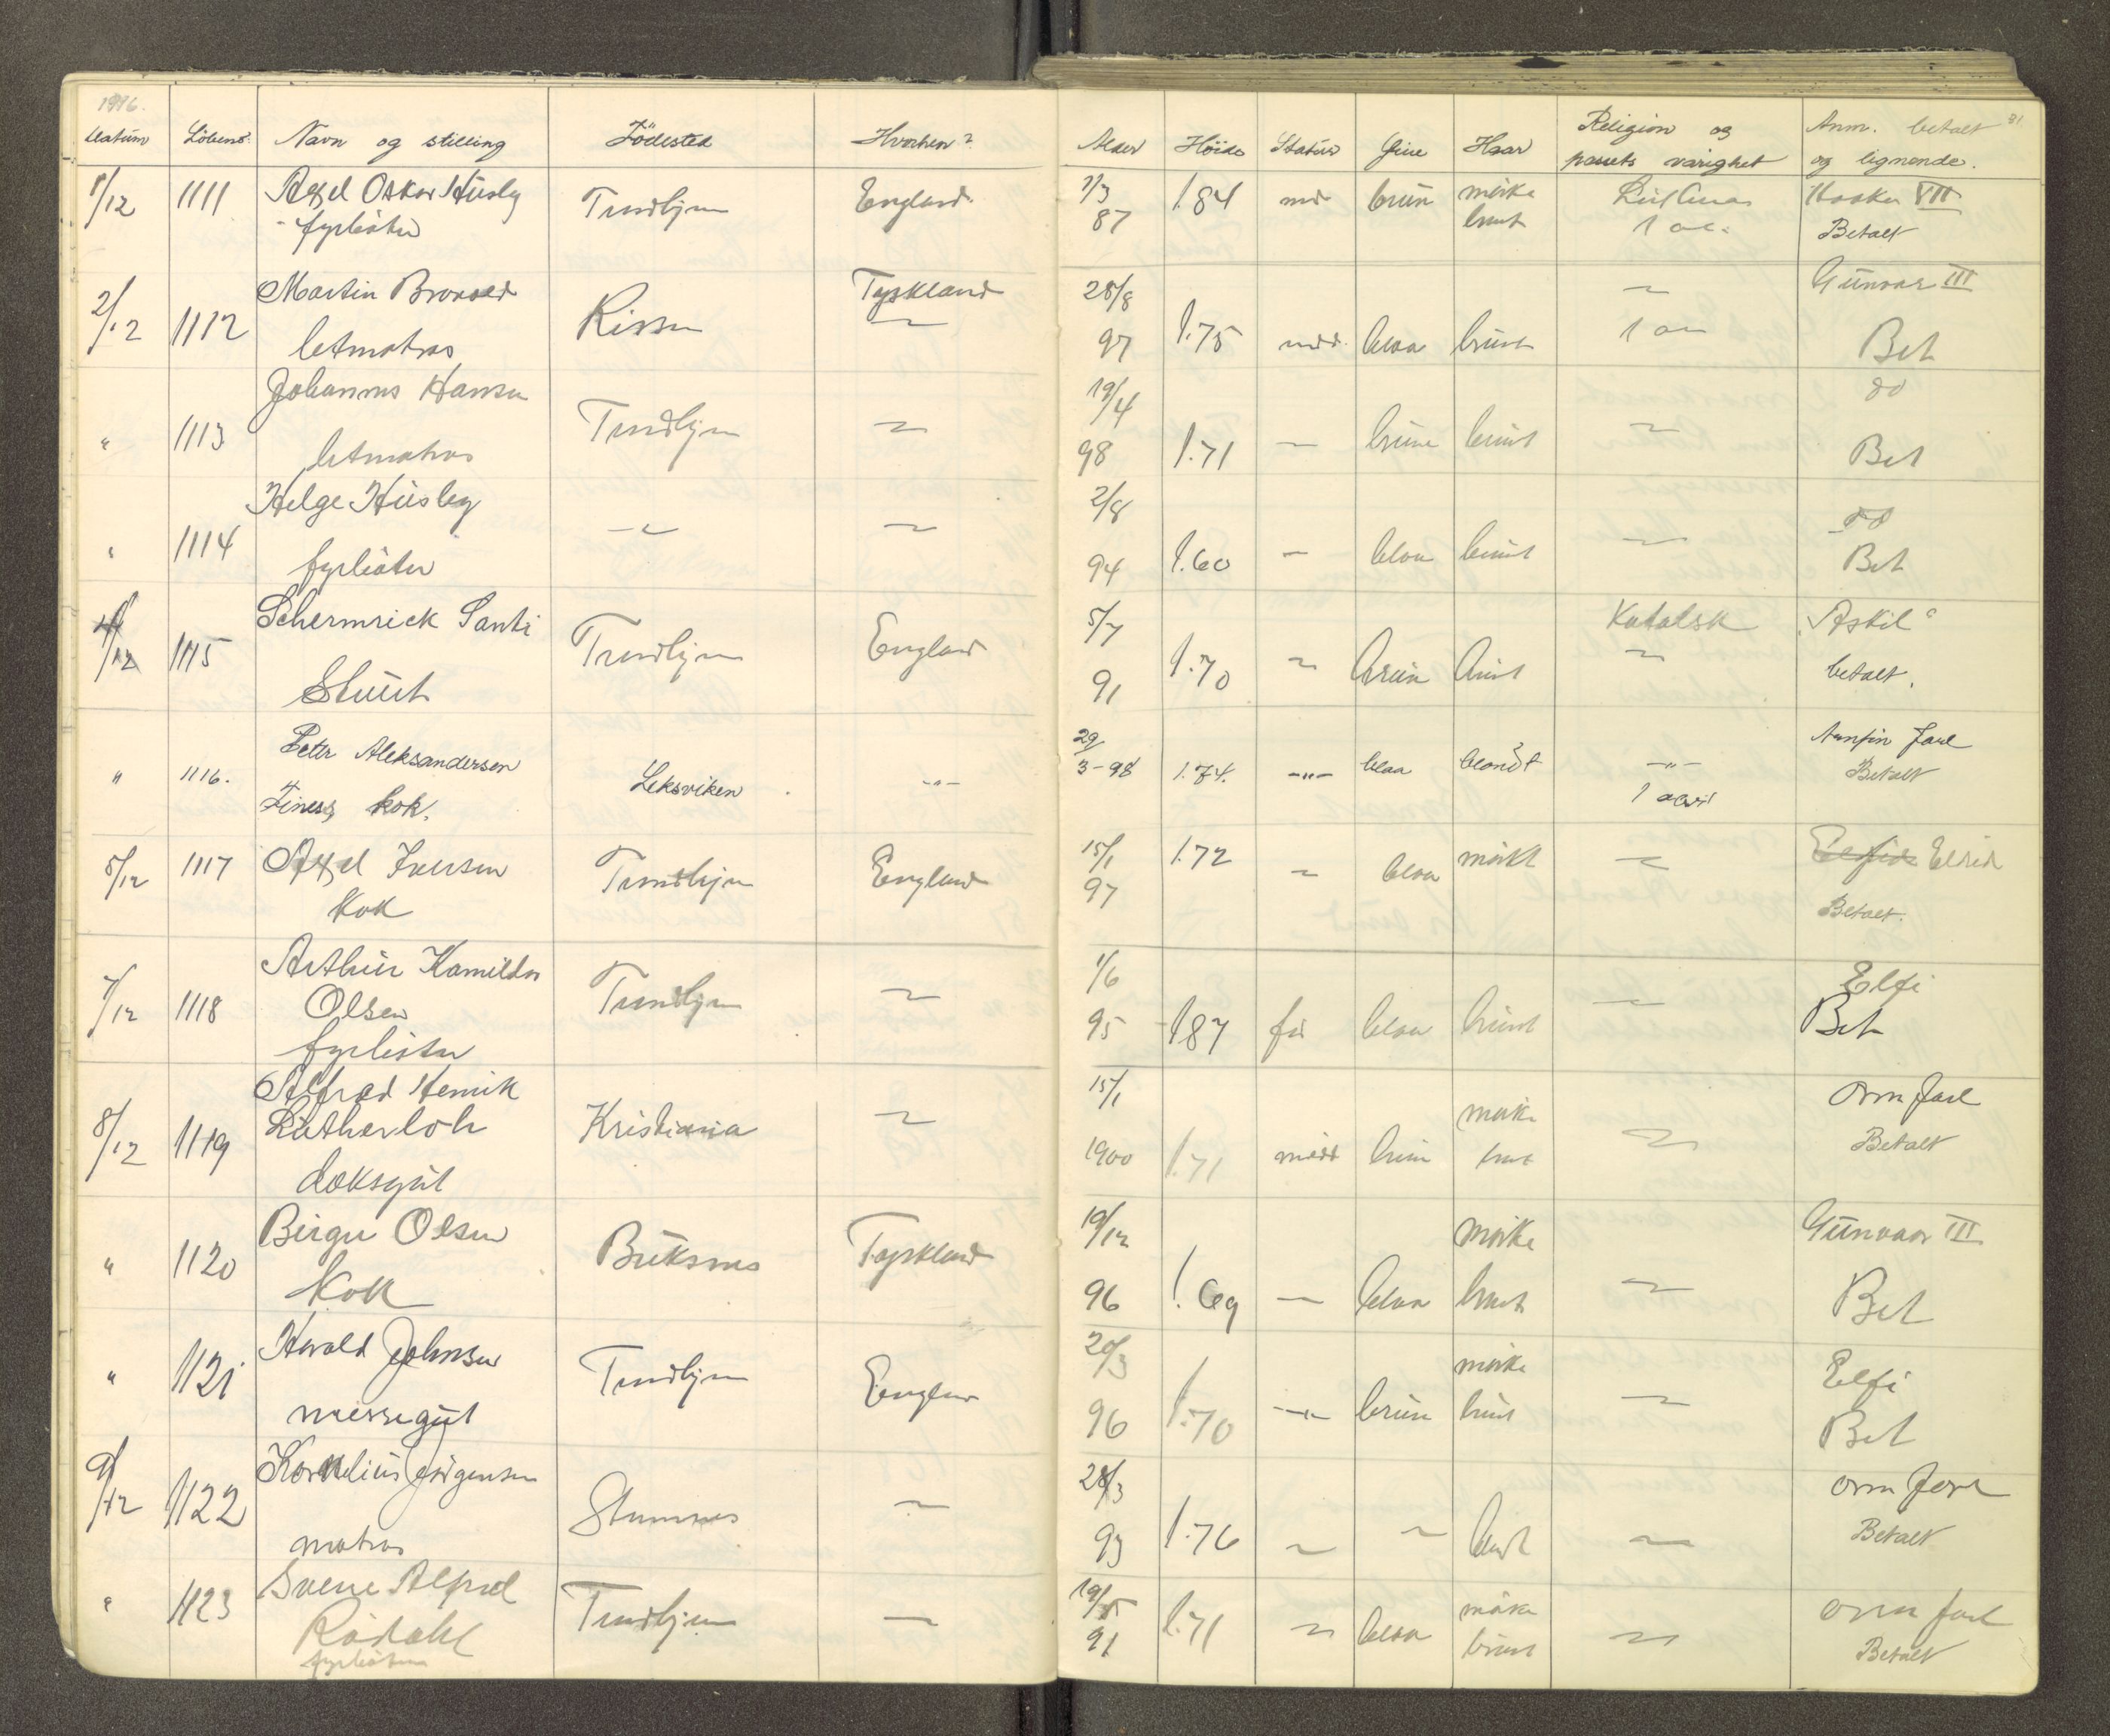 1916.
Datum Löbenr. Navn og stilling Födested Hvorhen? Alder Höide Statur Öine Haar Religion og passets varighet Anm. betalt og lignende. 81
1/12 1111 Axel Oskar Husby Trondhjem England 7/3 1.84 mid brun mörke Haakon VII
fyrböter 87 brunt 1 aar Betalt
2/12 1112 Martin Tyskland 28/8 ~ Gunvar III
letmatros Rissen ~ 97 1.75 midd. blaa brunt 1 aar Bet
" 1113 Johannes Hansen Trondhjem ~ 19/4 do
letmatros 98 1.71 ~ brune brunt ~ Bet
" 1114 Helge Husby ~ ~ 2/8 do
fyrböter 94 1.60 ~ blaa brunt ~ Bet
4/12 1115 Schermrick Santi Trondhjem England 5/7 Katolsk "Askil"
Stuert 91 1.70 ~ brun brunt ~ betalt.
" 1116. Peter Aleksandersen Leksviken -"- 29/3-98 1.74. -"- blaa blondt -"- Arnfin Jarl
Finess kok. 1 aar Betalt
5/12 1117 Axel Iversen Trondhjem England 15/1 1.72 ~ blaa mörkt ~ Elfrid Elrid
Kok 97 Betalt.
7/12 1118 Arthur Kamildor Trondhjem ~ 1/6 Elfi
Olsen 95 1.87 för blaa brunt ~ Bet
fyrböter
8/12 1119 Alfred Henrik Kristiania ~ 15/1 mörke Orm Jarl
Lütherloh 1900 1.71 midd brun brunt ~ Betalt
doksgut
" 1120 Birger Olsen Buksnes Tyskland 19/12 mörke Gunvaar III
Kok 96 1.69 ~ blaa brunt ~ Bet
" 1121 Harald Johnsen Trondhjem England 20/3 mörke Elfi
messegut 96 1.70 ~ brun brunt ~ Bet
9/12 1122 Kornelius Jörgensen ~ 28/3 Orm Jarl
matros 93 1.76 ~ ~ ~ Betalt
" 1123 Sverre Alfred Trondhjem ~ 19/5 1.71 ~ blaa mörke ~ Orm Jarl
Rödahl 91 brunt Betalt
fyrböter